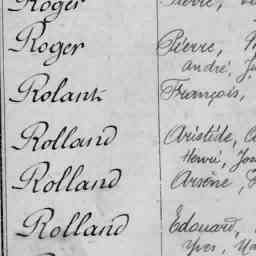 Roger
Roger Pierre,
André,
Rolank François,
Rolland Aristide,
Henri,
Rolland Arsène,
Rolland Édouard,
Yves,